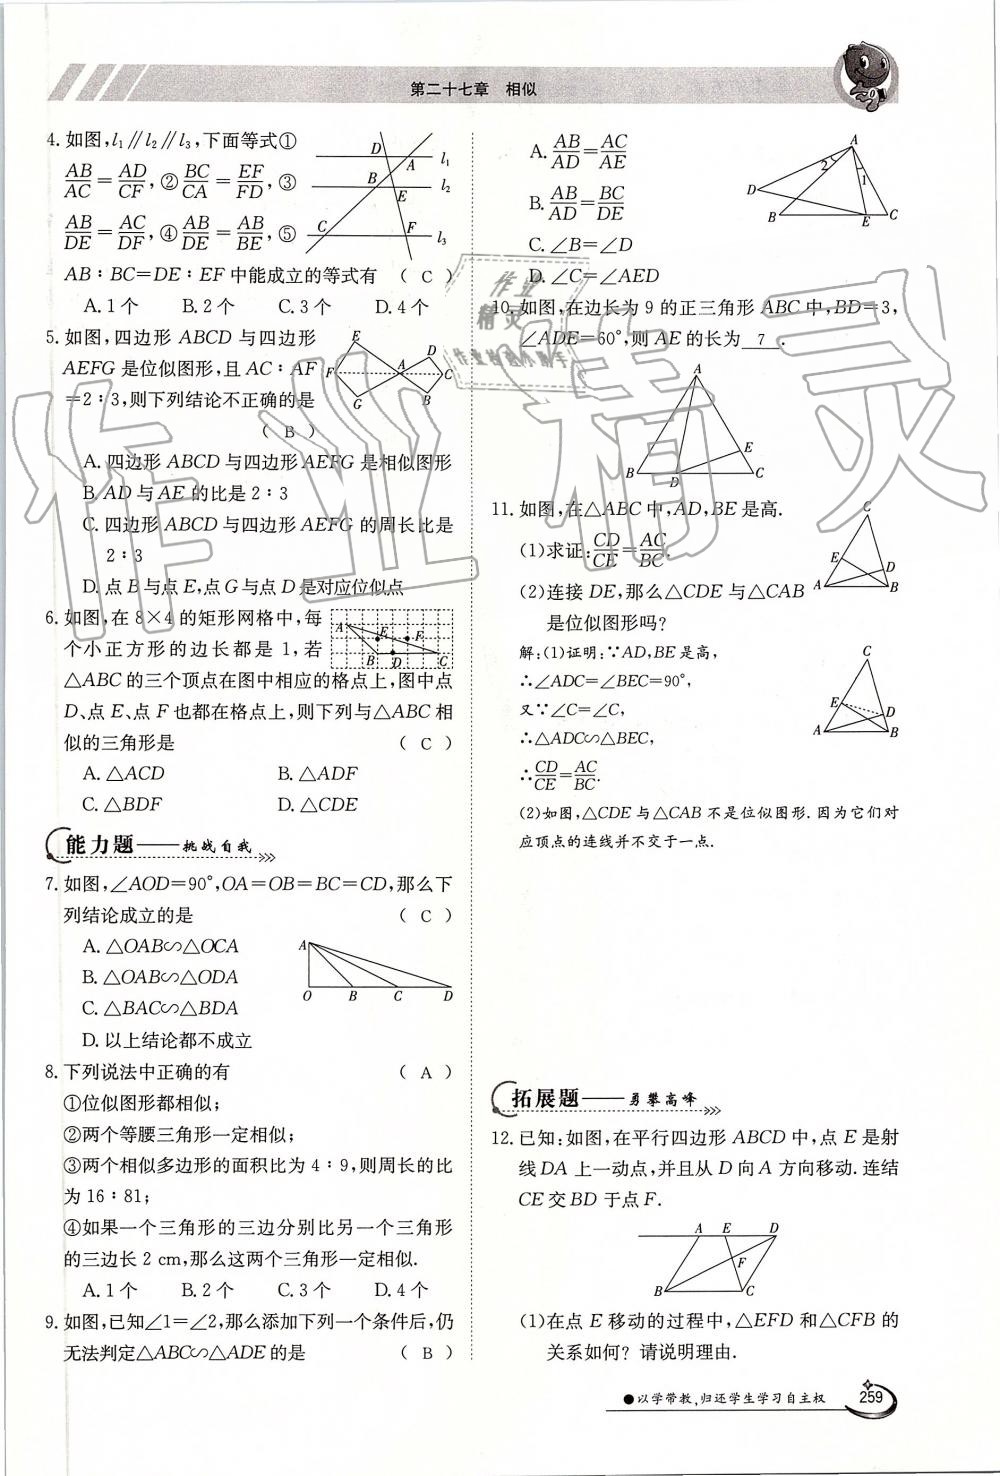 第二十七章　相似
4. 如图,l₁∥l₂∥l₃,下面等式①
AB/AC=AD/CF,②BC/CA=EF/FD,③
AB/DE=AC/DF,④AB/DE=AB/BE,⑤
AB∶BC=DE∶EF中能成立的等式有 ( C )
A. 1个 B. 2个 C. 3个 D. 4个
D A l₁
B E l₂
C F l₃
5. 如图,四边形ABCD与四边形
AEFG是位似图形,且AC∶AF
=2∶3,则下列结论不正确的是
( B )
E D
F A C
G B
A. 四边形ABCD与四边形AEFG是相似图形
B. AD与AE的比是2∶3
C. 四边形ABCD与四边形AEFG的周长比是
2∶3
D. 点B与点E,点G与点D是对应位似点
6. 如图,在8×4的矩形网格中,每
个小正方形的边长都是1,若
△ABC的三个顶点在图中相应的格点上,图中点
D、点E、点F也都在格点上,则下列与△ABC相
似的三角形是 ( C )
A E F
B D C
A. △ACD B. △ADF
C. △BDF D. △CDE
能力题——挑战自我
7. 如图,∠AOD=90°,OA=OB=BC=CD,那么下
列结论成立的是 ( C )
A. △OAB∽△OCA
B. △OAB∽△ODA
C. △BAC∽△BDA
D. 以上结论都不成立
A
O B C D
8. 下列说法中正确的有 ( A )
①位似图形都相似;
②两个等腰三角形一定相似;
③两个相似多边形的面积比为4∶9,则周长的比
为16∶81;
④如果一个三角形的三边分别比另一个三角形
的三边长2 cm,那么这两个三角形一定相似.
A. 1个 B. 2个 C. 3个 D. 4个
9. 如图,已知∠1=∠2,那么添加下列一个条件后,仍
无法判定△ABC∽△ADE的是 ( B )
A. AB/AD=AC/AE
B. AB/AD=BC/DE
C. ∠B=∠D
D. ∠C=∠AED
A
2 1
D
B E C
10. 如图,在边长为9的正三角形ABC中,BD=3,
∠ADE=60°,则AE的长为 7 .
A
E
B D C
11. 如图,在△ABC中,AD,BE是高.
(1)求证:CD/CE=AC/BC.
(2)连接DE,那么△CDE与△CAB
是位似图形吗?
C
E D
A B
解:(1)证明:∵AD,BE是高,
∴∠ADC=∠BEC=90°,
又∵∠C=∠C,
∴△ADC∽△BEC,
∴CD/CE=AC/BC.
(2)如图,△CDE与△CAB不是位似图形.因为它们对
应顶点的连线并不交于一点.
C
E D
A B
拓展题——勇攀高峰
12. 已知:如图,在平行四边形ABCD中,点E是射
线DA上一动点,并且从D向A方向移动.连结
CE交BD于点F.
A E D
F
B C
(1)在点E移动的过程中,△EFD和△CFB的
关系如何?请说明理由.
●以学带教,归还学生学习自主权 259
作业精灵
作业
精灵